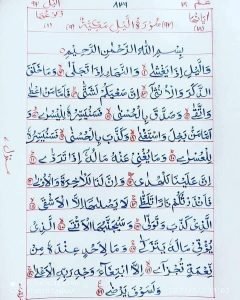 عم ٣٠
٨٢٩
اليل ٩٢
(٩٢) سُورَةُ الَّيْلِ مَكِّيَّةٌ (٩)
بِسْمِ اللَّهِ الرَّحْمَٰنِ الرَّحِيمِ
وَالَّيْلِ إِذَا يَغْشَىٰ وَالنَّهَارِ إِذَا تَجَلَّىٰ وَمَا خَلَقَ
الذَّكَرَ وَالْأُنْثَىٰ إِنَّ سَعْيَكُمْ لَشَتَّىٰ فَأَمَّا مَنْ أَعْطَىٰ
وَاتَّقَىٰ وَصَدَّقَ بِالْحُسْنَىٰ فَسَنُيَسِّرُهُ لِلْيُسْرَىٰ
وَأَمَّا مَنْ بَخِلَ وَاسْتَغْنَىٰ وَكَذَّبَ بِالْحُسْنَىٰ فَسَنُيَسِّرُهُ
لِلْعُسْرَىٰ وَمَا يُغْنِي عَنْهُ مَالُهُ إِذَا تَرَدَّىٰ
إِنَّ عَلَيْنَا لَلْهُدَىٰ وَإِنَّ لَنَا لَلْآخِرَةَ وَالْأُولَىٰ
فَأَنْذَرْتُكُمْ نَارًا تَلَظَّىٰ لَا يَصْلَاهَا إِلَّا الْأَشْقَى
الَّذِي كَذَّبَ وَتَوَلَّىٰ وَسَيُجَنَّبُهَا الْأَتْقَى الَّذِي
يُؤْتِي مَالَهُ يَتَزَكَّىٰ وَمَا لِأَحَدٍ عِنْدَهُ مِنْ
نِعْمَةٍ تُجْزَىٰ إِلَّا ابْتِغَاءَ وَجْهِ رَبِّهِ الْأَعْلَىٰ
وَلَسَوْفَ يَرْضَىٰ